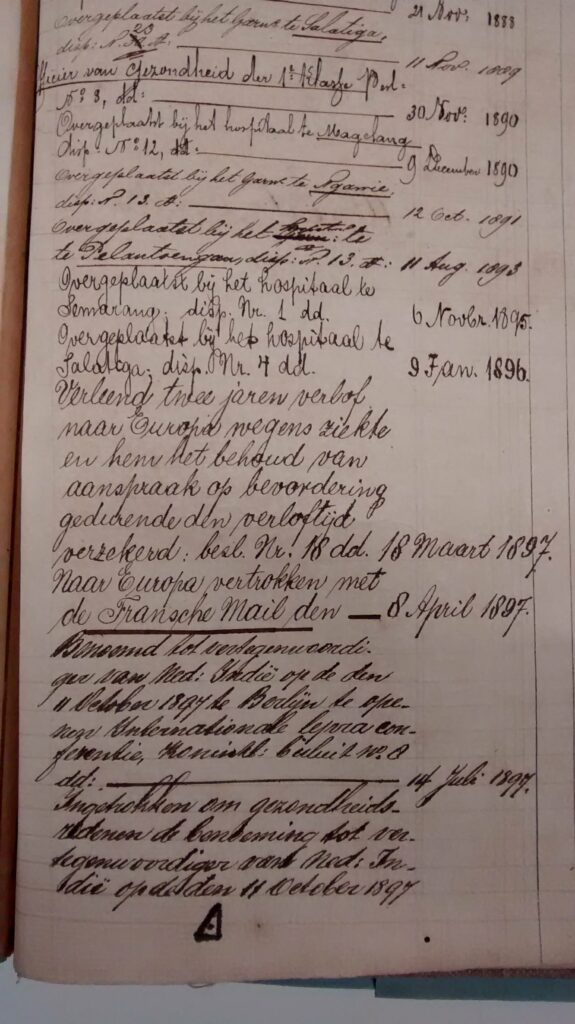 21 Nov: 1888
Overgeplaatst bij het Garn: te Salatiga,
23
disp: N. A. 11 Nov. 1889
Officier van Gezondheid der 1e Klasse
No 8, dd: 30 Nov: 1890
Overgeplaatst bij het hospitaal te Magelang
Disp. No 12, dd: 9 December 1890
Overgeplaatst bij het Garn: te Ngawie,
disp: N. 13. A: 12 Oct. 1891
Overgeplaatst bij het te
te Pelantoengan, disp: N. 13. A: 11 Aug. 1893
Overgeplaatst bij het hospitaal te
Semarang: disp. Nr. 1 dd. 6 Novbr. 1895.
Overgeplaatst bij het hospitaal te
Salatiga: disp. Nr. 4 dd. 9 Jan. 1896.
Verleend twee jaren verlof
naar Europa wegens ziekte
en hem het behoud van
aanspraak op bevordering
gedurende den verloftijd
verzekerd: besl. Nr. 18 dd. 18 Maart 1897.
Naar Europa vertrokken met
de Fransche Mail den — 8 April 1897.
Benoemd tot vertegenwoordi-
ger van Ned: Indië op de den
11 October 1897 te Berlijn te ope-
nen Internationale lepra con-
ferentie, Koninkl: besluit no. 8
dd: 14 Juli 1897.
Ingetrokken om gezondheids-
redenen de benoeming tot ver-
tegenwoordiger van Ned: In-
dië op de den 11 October 1897